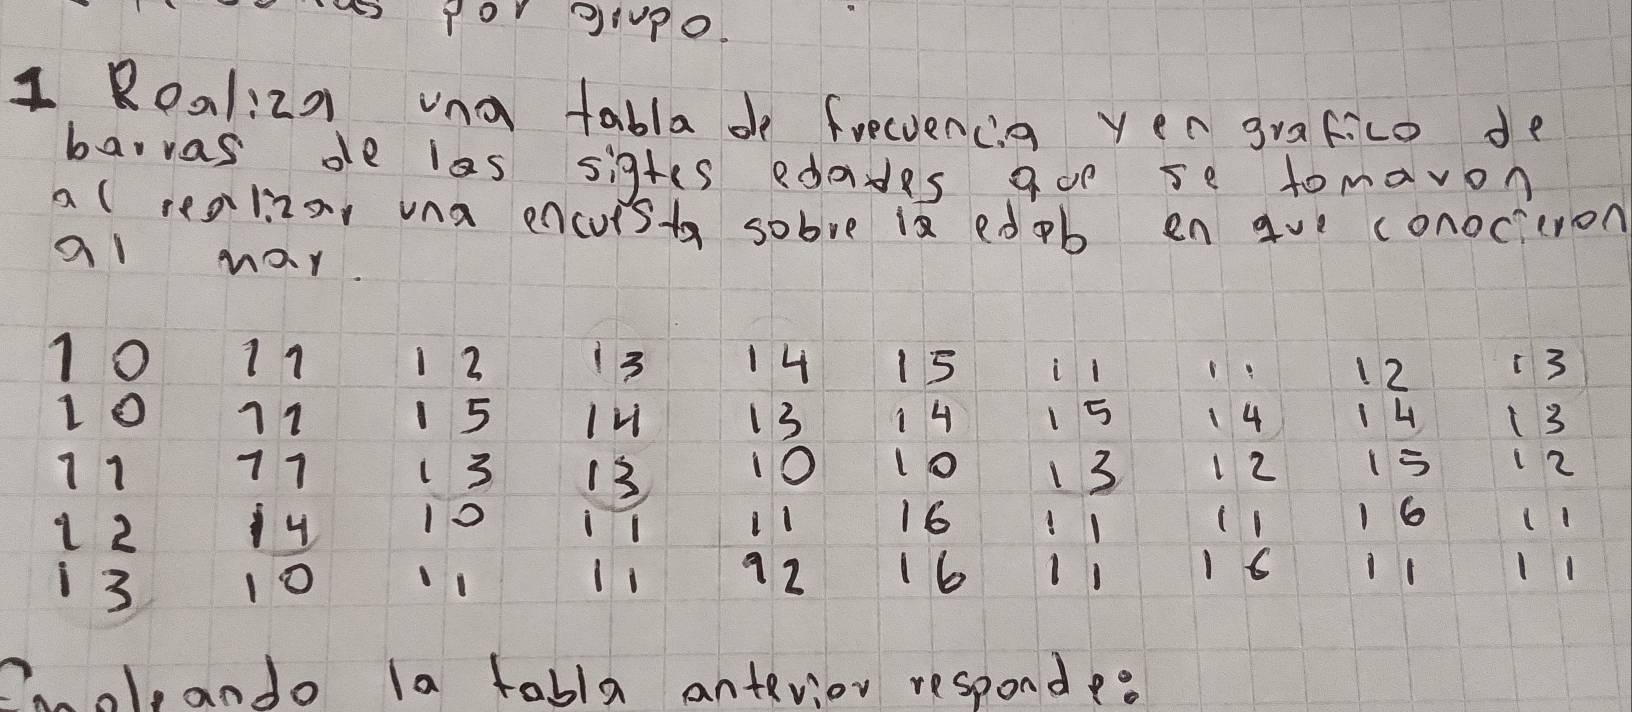 por grupo.
1 Realiza una tabla de frecuencia y en grafico de
barras de las sigtes edades que se tomaron
al realizar una encuesta sobre la edad en que conocieron
al mar.
10 11 12 13 14 15 11 11 12 13
10 11 15 14 13 14 15 14 14 13
11 11 13 13 10 10 13 12 15 12
12 14 10 11 11 16 11 11 16 11
13 10 11 11 12 16 11 16 11 11
Empleando la tabla anterior responde: